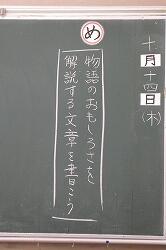 十月十四日(木)
め
物語のおもしろさを
解説する文章を書こう